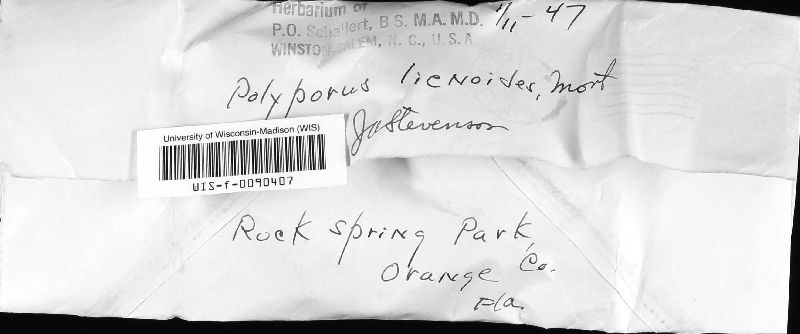 Herbarium of
P.O. Schallert, B.S. M.A. M.D. 1/11-47
WINSTON-SALEM, N. C., U.S.A.
Polyporus licnoides, Mont
JAStevenson
University of Wisconsin-Madison (WIS)
WIS-f-0090407
Rock Spring Park
Orange Co.
Fla.